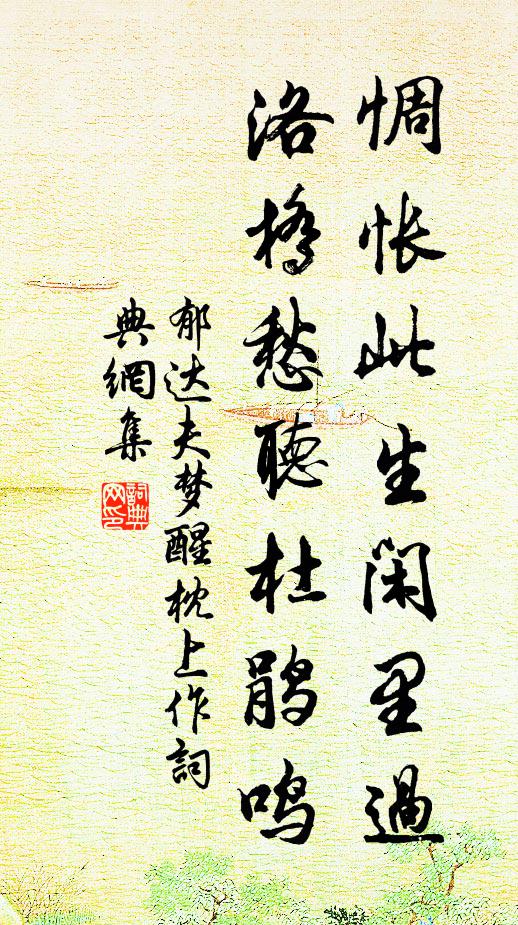 惆怅此生闲里過
洛橋愁聽杜鹃鸣
郁达夫梦醒枕上作詞
典網集
詞典网印